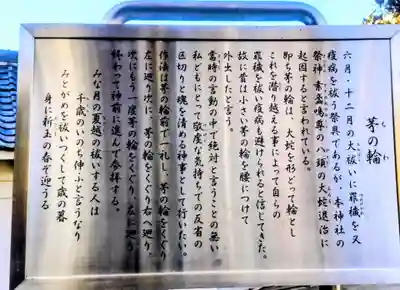 茅の輪
六月・十二月の大祓いに罪穢を又
疫病を祓う祭具であるが、本神社の
祭神 素盞嗚尊の八頭の大蛇退治に
起因すると言われている。
即ち茅の輪は、大蛇を形どって輪とし
これを潜り越える事によって自らの
罪穢を祓い疫病も避けられると信じてきた。
故に昔は小さい茅の輪を腰につけて
外出したと言う。
当時の言動の中で絶対と言うことの無い
私どもにとって敬虔な気持ちでの反省の
区切りと魂を清める神事として行いたい。
作法は茅の輪の前で一礼し、茅の輪をくぐり
左に廻り次に、茅の輪をくぐり右へ廻り、
次にもう一度茅の輪をくぐり、左に廻り
終わって神前に進んで参拝する。
みな月の夏越の祓いする人は
千歳のいのち伸ふと言うなり
みとがめを祓いつくして歳の暮
身に新玉の春ぞ迎うる